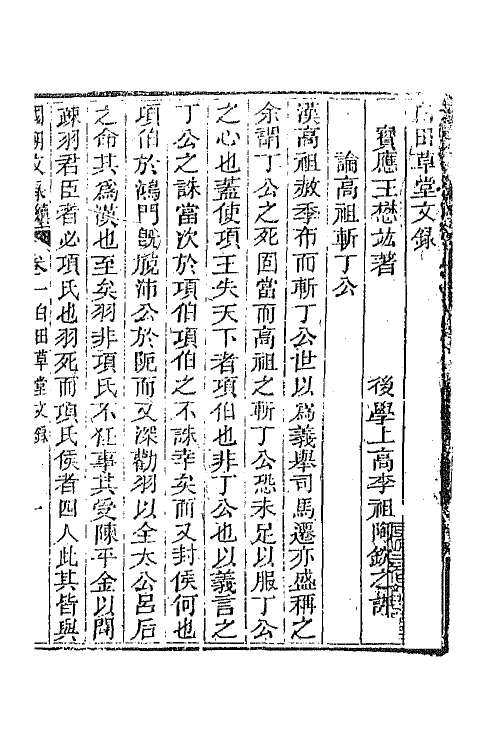 白田草堂文録
寳應王懋竑著　後學上高李祖陶欽之評
論高祖斬丁公
漢高祖赦季布而斬丁公世以爲義舉司馬遷亦盛稱之
余謂丁公之死固當而高祖之斬丁公恐未足以服丁公
之心也蓋使項王失天下者項伯也非丁公也以義言之
丁公之誅當次於項伯項伯之不誅幸矣而又封侯何也
項伯於鴻門旣脫沛公於阨而又深勸羽以全太公呂后
之命其爲漢也至矣羽非項氏不任事其受陳平金以間
疎羽君臣者必項氏也羽死而項氏侯者四人此其皆與
國朝文録續編 卷一白田草堂文録 一